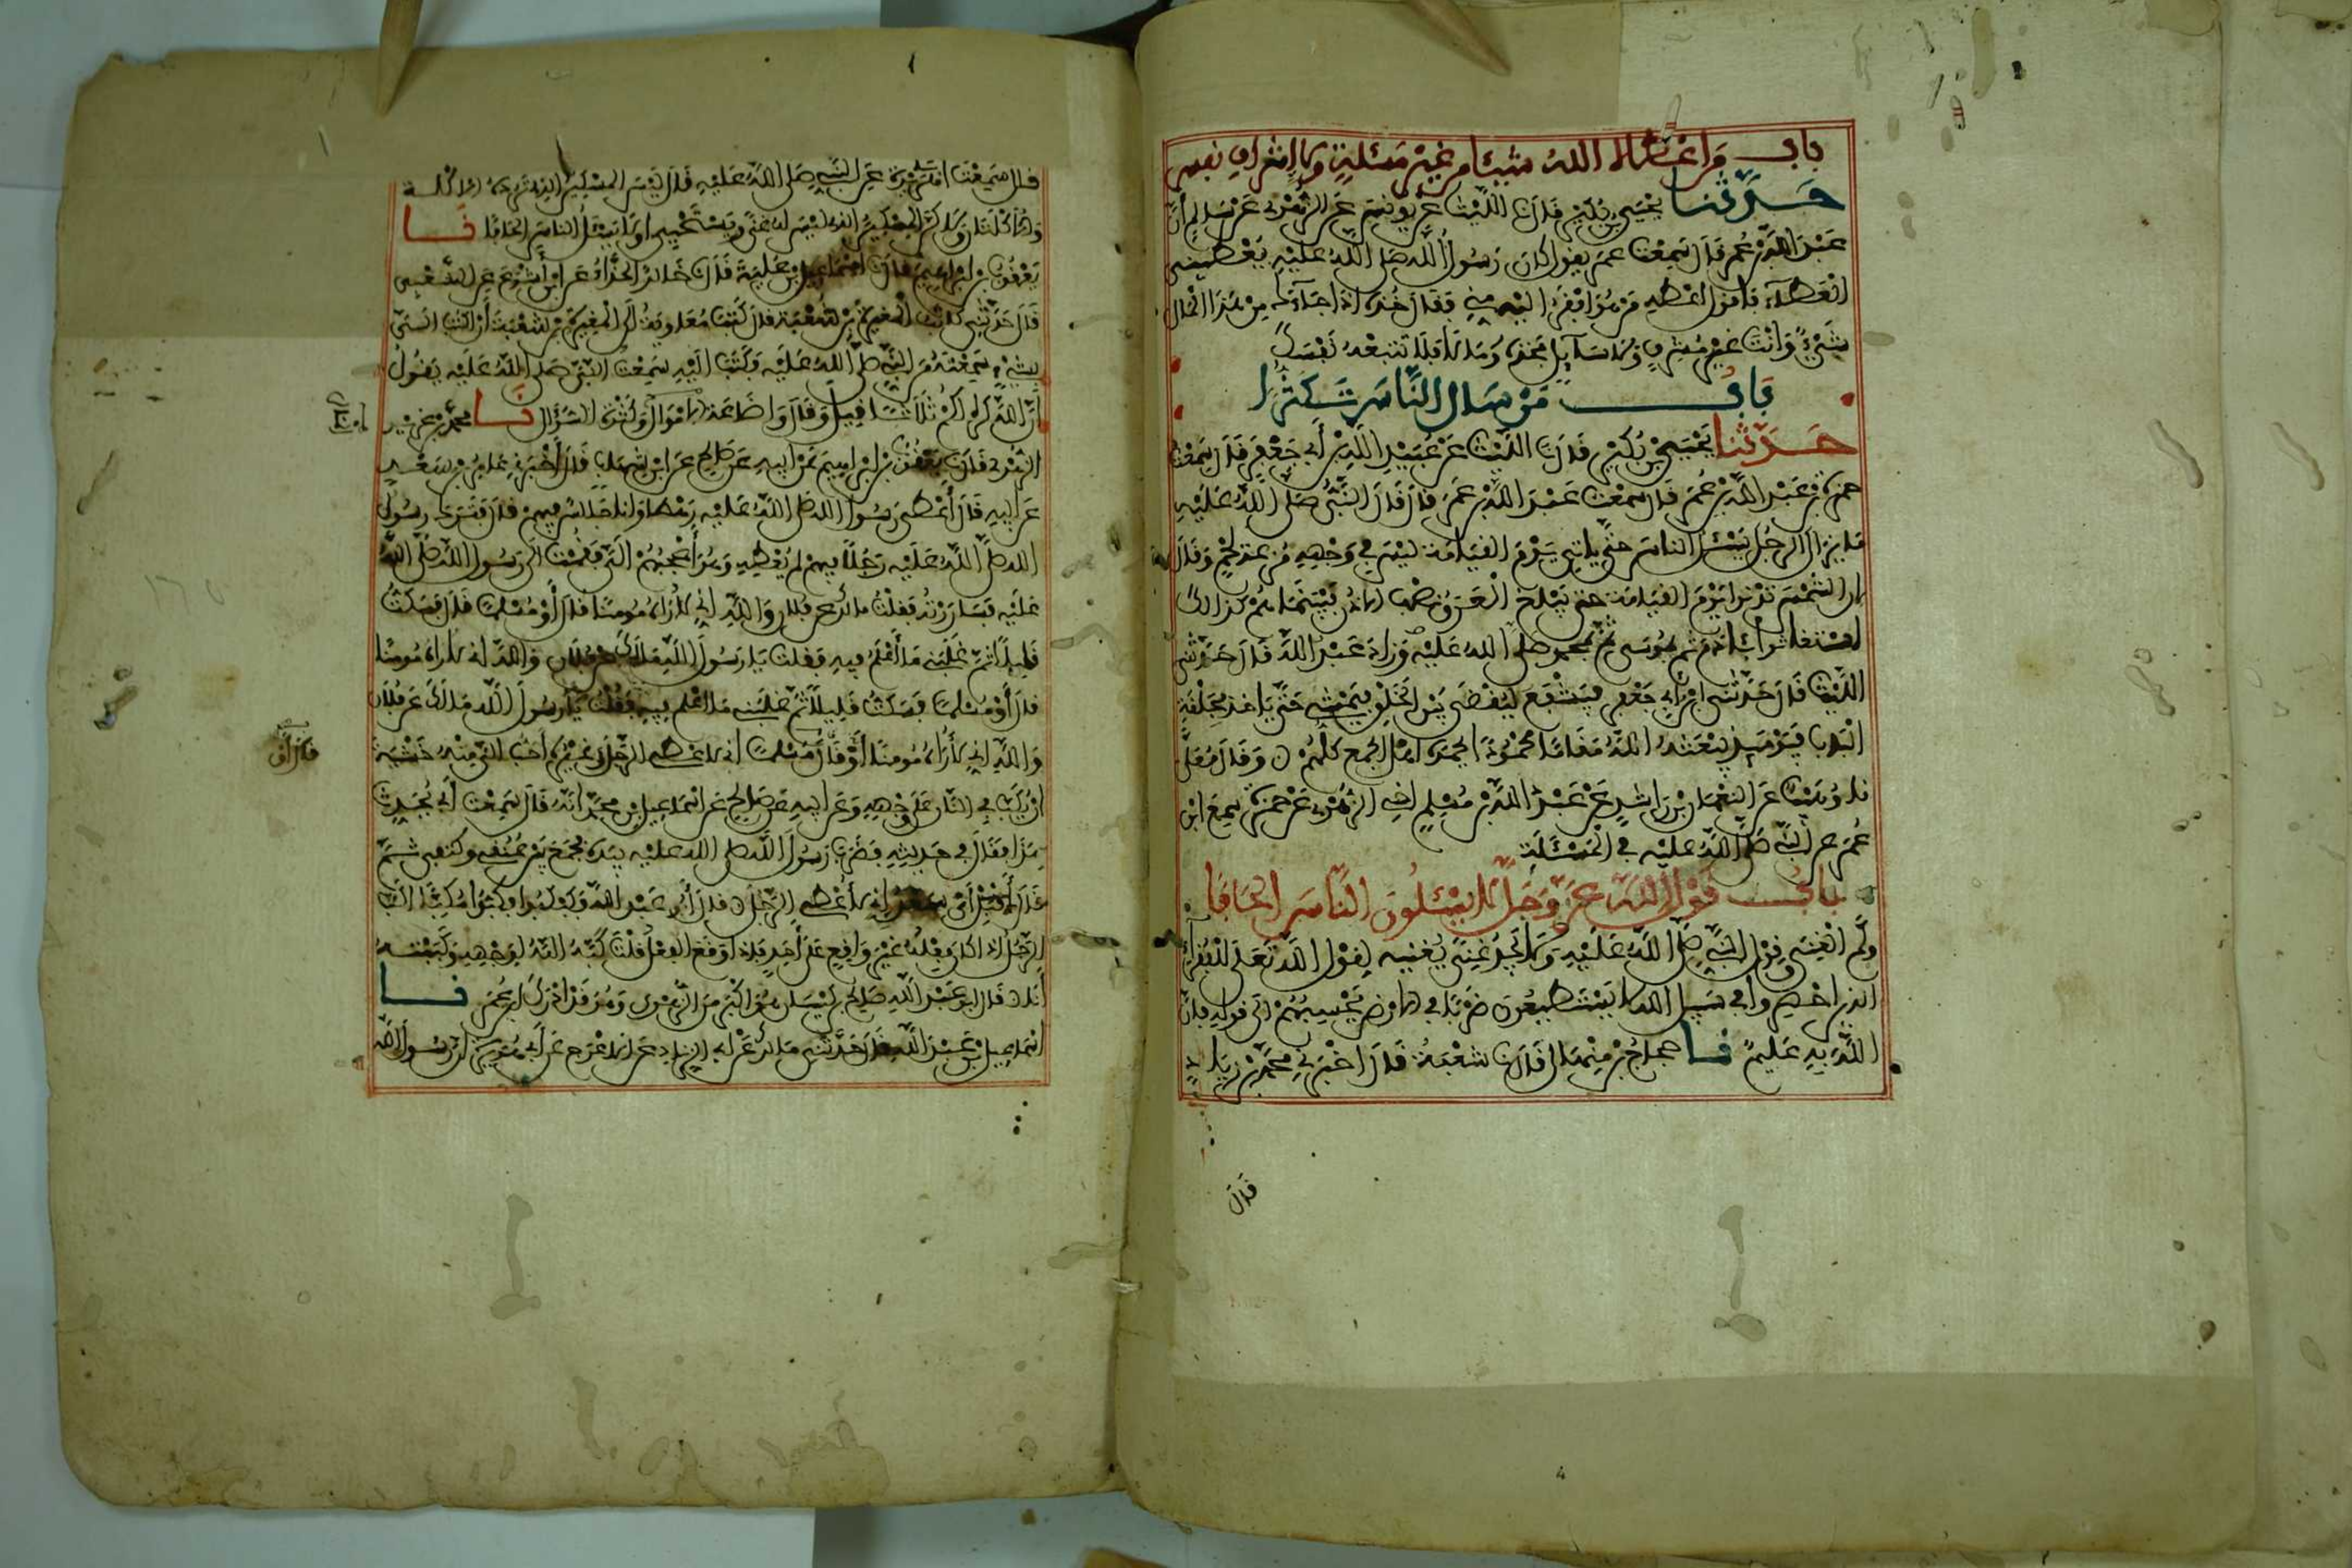 باب من اعطاه الله شيئا من غير مسئلة ولا إشراف نفس
حدثنا يحيى بن بكير قال نا الليث عن يونس عن الزهري عن سالم أن
عبد الله بن عمر قال سمعت عمر يقول كان رسول الله صلى الله عليه يعطيني
العطاء فاقول اعطه من هو افقر اليه مني فقال خذه اذا جاءك من هذا المال
شيء وانت غير مشرف ولا سائل فخذه وما لا فلا تتبعه نفسك
باب من سال الناس تكثرا
حدثنا يحيى بن بكير قال نا الليث عن عبيد الله بن أبي جعفر قال سمعت
حمزة بن عبد الله بن عمر قال سمعت عبد الله بن عمر قال قال النبي صلى الله عليه
ما يزال الرجل يسئل الناس حتى ياتي يوم القيامة ليس في وجهه مزعة لحم وقال
ان الشمس تدنو يوم القيامة حتى يبلغ العرق نصف الاذن فبينما هم كذالك
استغاثوا بئادم ثم بموسى ثم بمحمد صلى الله عليه وزاد عبد الله قال حدثني
الليث قال حدثني ابن أبي جعفر فيشفع ليقضى بين الخلق فيمشي حتى ياخذ بحلقة
الباب فيومئذ يبعثه الله مقاما محمودا يحمده اهل الجمع كلهم وقال معلى
نا وهيب عن النعمان بن راشد عن عبد الله بن مسلم اخي الزهري عن حمزة سمع ابن
عمر عن النبي صلى الله عليه في المسئلة
باب قول الله عز وجل لا يسئلون الناس الحافا
وكم الغنى وقول النبي صلى الله عليه ولا يجد غنى يغنيه لقول الله تعلى للفقراء
الذين احصروا في سبيل الله لا يستطيعون ضربا في الارض يحسبهم الى قوله فان
الله به عليم نا حجاج بن منهال قال نا شعبة قال اخبرني محمد بن زياد
قال
قال سمعت ابا هريرة عن النبي صلى الله عليه قال ليس المسكين الذي ترده الاكلة
والاكلتان ولاكن المسكين الذي ليس له غنى ويستحيي او لا يسئل الناس الحافا نا
يعقوب بن ابراهيم قال نا اسماعيل بن علية قال نا خالد الحذاء عن ابن أشوع عن الشعبي
قال حدثني كاتب المغيرة بن شعبة قال كتب معاوية الى المغيرة بن شعبة أن اكتب الي
بشيء سمعته من النبي صلى الله عليه وكتب اليه سمعت النبي صلى الله عليه يقول
إن الله كره لكم ثلاثا قيل وقال واضاعة الاموال وكثرة السؤال نا محمد بن غرير
الزهري قال نا يعقوب بن ابراهيم عن ابيه عن صالح عن ابن شهاب قال أخبرني عامر بن سعد
عن ابيه قال أعطى رسول الله صلى الله عليه رهطا وانا جالس فيهم قال فترك رسول
الله صلى الله عليه رجلا فيهم لم يعطه وهو أعجبهم الي فقمت الى رسول الله صلى الله
عليه فساررته فقلت ما لك عن فلان والله إني لأراه مومنا قال أو مسلما قال فسكت
قليلا ثم غلبني ما أعلم فيه فقلت يا رسول الله ما لك عن فلان والله اني لاراه مومنا
قال أو مسلما فسكت قليلا ثم غلبني ما اعلم فيه فقلت يا رسول الله ما لك عن فلان
والله اني لأراه مومنا قال أو مسلما اني لاعطي الرجل وغيره أحب الي منه خشية
ان يكب في النار على وجهه وعن ابيه عن صالح عن اسماعيل بن محمد انه قال سمعت أبي يحدث
هذا فقال في حديثه فضرب رسول الله صلى الله عليه بيده فجمع بين عنقي وكتفي ثم
قال أقبل اي سعد إني لأعطي الرجل قال أبو عبد الله فكبكبوا فكبوا مكبا اكب
الرجل اذا كان فعله غير واقع على أحد فاذا وقع الفعل قلت كبه الله لوجهه وكببته
أنا قال ابو عبد الله صالح بن كيسان هو اكبر من الزهري وهو قد ادرك ابن عمر نا
اسماعيل بن عبد الله قال حدثني مالك عن أبي الزناد عن الاعرج عن أبي هريرة أن رسول الله